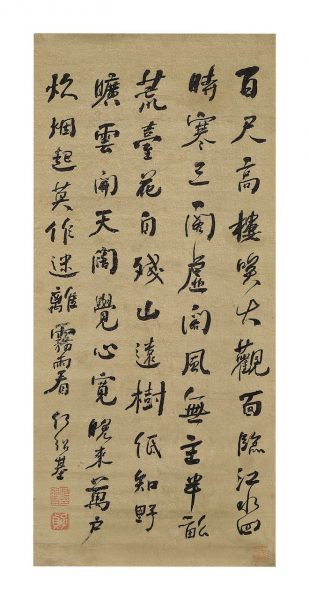 百尺高樓大觀面臨江水四
時寒三間虛閣風無主半畝
荒臺花自殘山遠樹低知野
曠雲開天闊覺心寬晚來萬戶
炊烟起莫作迷離霧雨看 何紹基